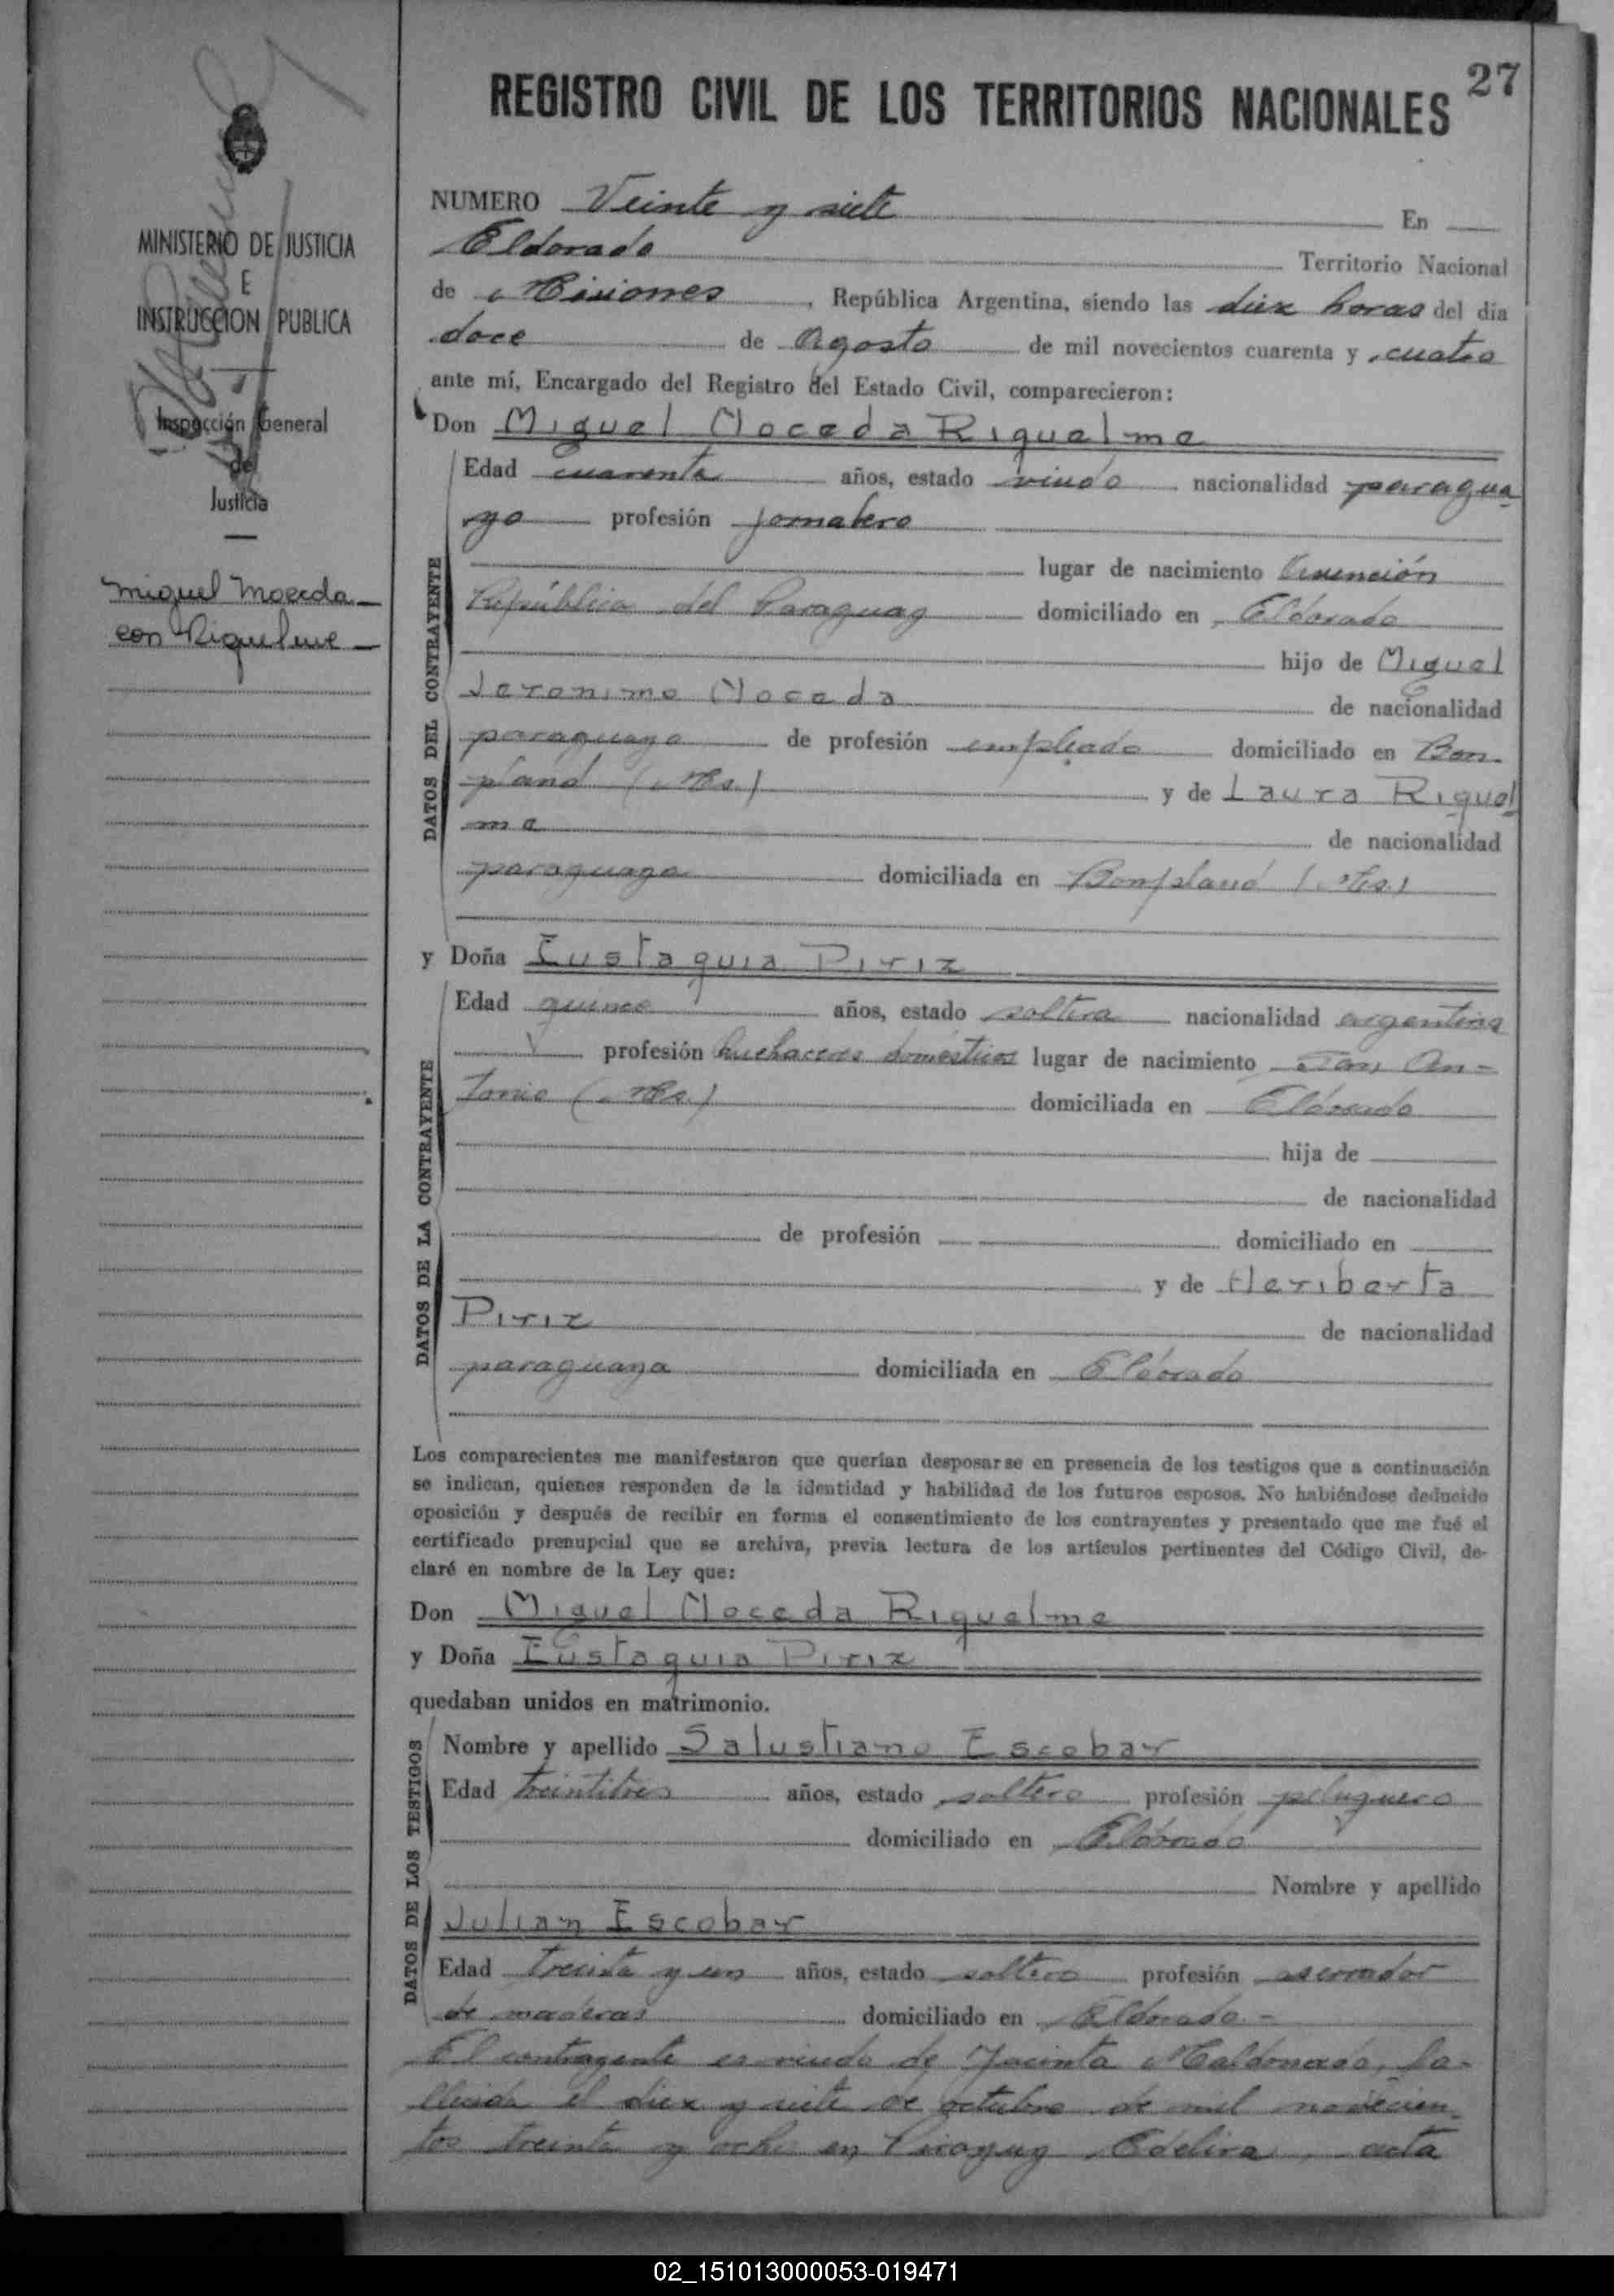 27
REGISTRO CIVIL DE LOS TERRITORIOS NACIONALES
MINISTERIO DE JUSTICIA
E
INSTRUCCION PUBLICA
Inspección General
de
Justicia
Miguel Moceda
con Riquelme
NUMERO Veinte y siete En
Eldorado Territorio Nacional
de Misiones, República Argentina, siendo las diez horas del día
doce de Agosto de mil novecientos cuarenta y cuatro
ante mí, Encargado del Registro del Estado Civil, comparecieron:
Don Miguel Moceda Riquelme
DATOS DEL CONTRAYENTE
Edad cuarenta años, estado viudo nacionalidad paragua
yo profesión jornalero
lugar de nacimiento Asunción
República del Paraguay domiciliado en Eldorado
hijo de Miguel
Jeronimo Moceda de nacionalidad
paraguayo de profesión empleado domiciliado en Bon-
pland (Mes.) y de Laura Riquel
me de nacionalidad
paraguaya domiciliada en Bompland (Mes.)
y Doña Eustaquia Piriz
DATOS DE LA CONTRAYENTE
Edad quince años, estado soltera nacionalidad argentina
profesión quehaceres domésticos lugar de nacimiento San An-
tonio (Mes.) domiciliada en Eldorado
hija de
de nacionalidad
de profesión domiciliado en
y de Heriberta
Piriz de nacionalidad
paraguaya domiciliada en Eldorado
Los comparecientes me manifestaron que querían desposarse en presencia de los testigos que a continuación
se indican, quienes responden de la identidad y habilidad de los futuros esposos. No habiéndose deducido
oposición y después de recibir en forma el consentimiento de los contrayentes y presentado que me fué el
certificado prenupcial que se archiva, previa lectura de los artículos pertinentes del Código Civil, de-
claré en nombre de la Ley que:
Don Miguel Moceda Riquelme
y Doña Eustaquia Piriz
quedaban unidos en matrimonio.
DATOS DE LOS TESTIGOS
Nombre y apellido Salustiano Escobar
Edad treintitres años, estado soltero profesión peluquero
domiciliado en Eldorado
Nombre y apellido
Julian Escobar
Edad treinta y un años, estado soltero profesión aserrador
de maderas domiciliado en Eldorado.-
El contrayente es viudo de Jacinta Maldonado, fa-
llecida el diez y siete de octubre de mil novecien-
tos treinta y ocho en Piragüy Edelira, acta
02_151013000053-019471